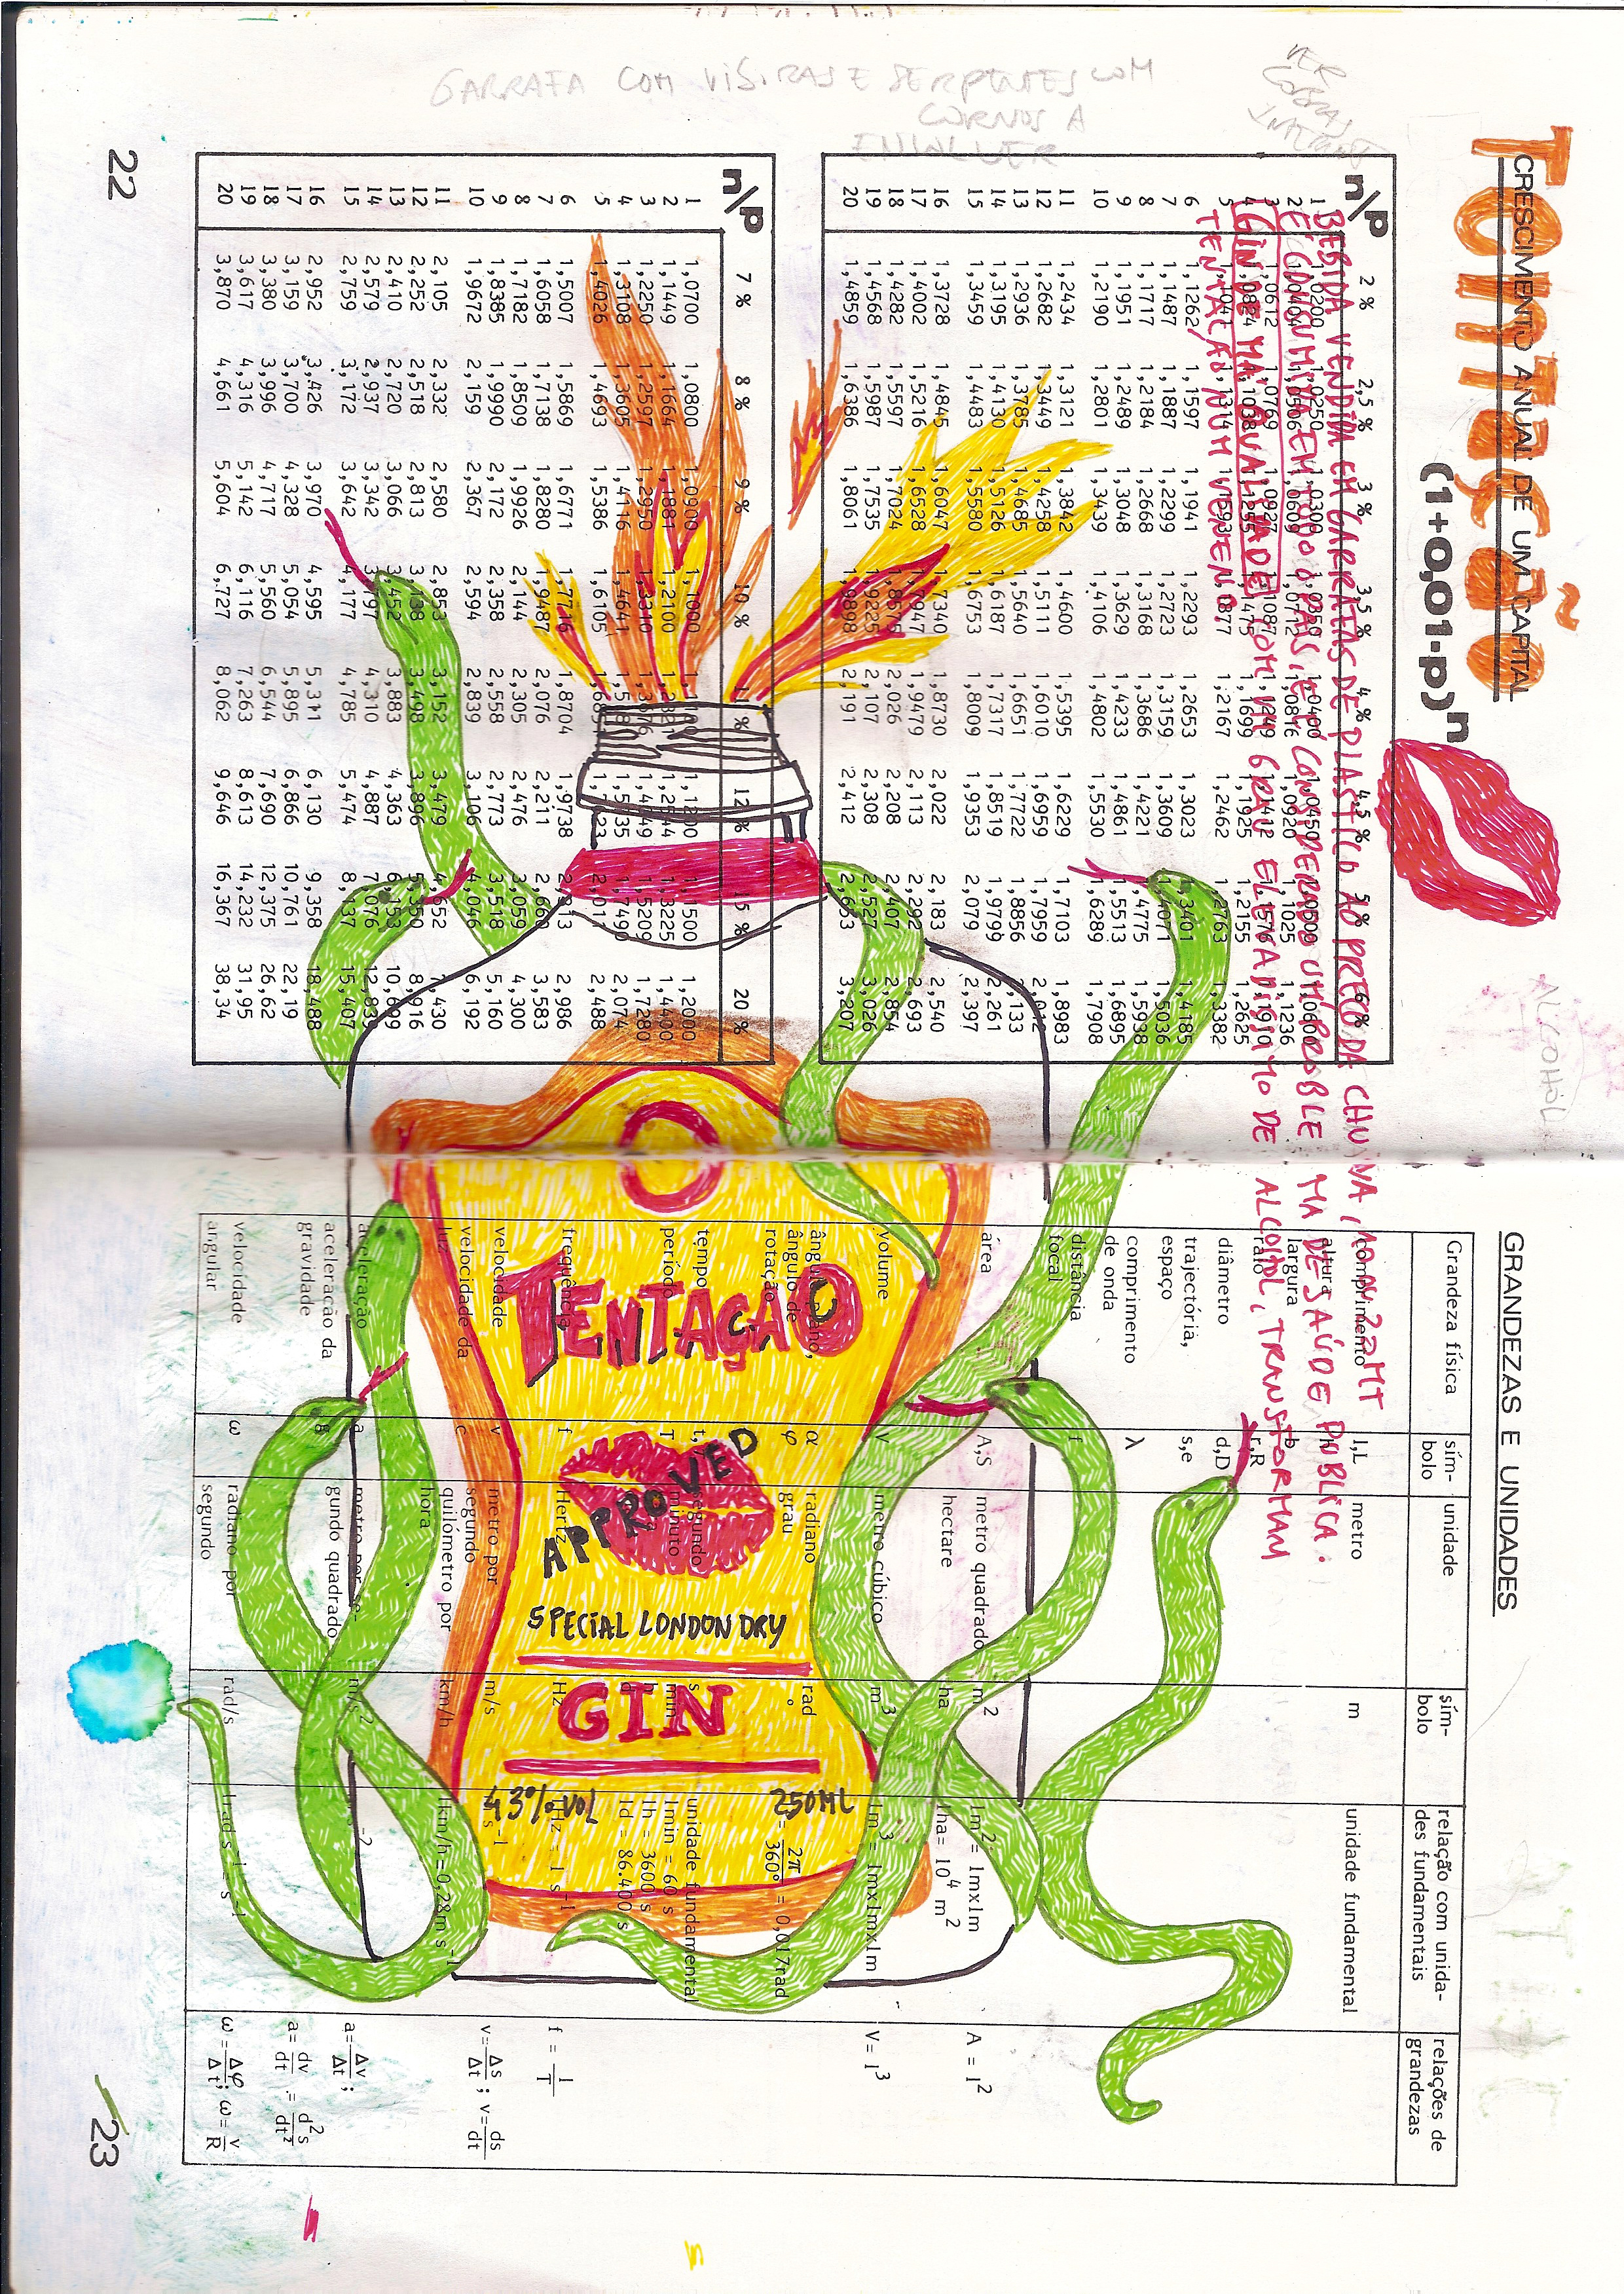 TENTAÇÃO
CRESCIMENTO ANUAL DE UM CAPITAL
(1+0,01·p)ⁿ
GARRAFA COM VISIRAS E SERPENTES COM
CORNOS A
ENVOLVER
VER
COBRAS
INTERNET
ALCOHOL
BEBIDA VENDIDA EM GARRAFAS DE PLASTICO AO PREÇO DA CHUVA, 10 ou 22 MT
É CONSUMIDA EM TODO O PAÍS, E É CONSIDERADO UM PROBLEMA DE SAÚDE PÚBLICA.
GIN DE MÁ QUALIDADE COM UM GRAU ELEVADISSIMO DE ALCOOL, TRANSFORMAM
TENTAÇÃO NUM VENENO
n/p 2 % 2,5 % 3 % 3,5 % 4 % 4,5 % 5 % 6 %
1
2
3
4
5 1,2167 1,2462 1,2763 1,3382
6 1,1262 1,1597 1,1941 1,2293 1,2653 1,3023 1,3401 1,4185
7 1,1487 1,1887 1,2299 1,2723 1,3159 1,3609 1,4071 1,5036
8 1,1717 1,2184 1,2668 1,3168 1,3686 1,4221 1,4775 1,5938
9 1,1951 1,2489 1,3048 1,3629 1,4233 1,4861 1,5513 1,6895
10 1,2190 1,2801 1,3439 1,4106 1,4802 1,5530 1,6289 1,7908
11 1,2434 1,3121 1,3842 1,4600 1,5395 1,6229 1,7103 1,8983
12 1,2682 1,3449 1,4258 1,5111 1,6010 1,6959 1,7959 2,012
13 1,2936 1,3785 1,4685 1,5640 1,6651 1,7722 1,8856 2,133
14 1,3195 1,4130 1,5126 1,6187 1,7317 1,8519 1,9799 2,261
15 1,3459 1,4483 1,5580 1,6753 1,8009 1,9353 2,079 2,397
16 1,3728 1,4845 1,6047 1,7340 1,8730 2,022 2,183 2,540
17 1,4002 1,5216 1,6528 1,7947 1,9479 2,113 2,292 2,693
18 1,4282 1,5597 1,7024 1,8575 2,026 2,208 2,407 2,854
19 1,4568 1,5987 1,7535 1,9225 2,107 2,308 2,527 3,026
20 1,4859 1,6386 1,8061 1,9898 2,191 2,412 2,653 3,207
n/p 7 % 8 % 9 % 10 % 11 % 12 % 15 % 20 %
1 1,0700 1,0800 1,0900 1,1000 1,1200 1,1500 1,2000
2 1,1449 1,1664 1,1881 1,2100 1,2544 1,3225 1,4400
3 1,2250 1,2597 1,2950 1,3310 1,4049 1,5209 1,7280
4 1,3108 1,3605 1,4116 1,4641 1,5735 1,7490 2,074
5 1,4026 1,4693 1,5386 1,6105 2,011 2,488
6 1,5007 1,5869 1,6771 1,7716 1,8704 1,9738 2,313 2,986
7 1,6058 1,7138 1,8280 1,9487 2,076 2,211 2,660 3,583
8 1,7182 1,8509 1,9926 2,144 2,305 2,476 3,059 4,300
9 1,8385 1,9990 2,172 2,358 2,558 2,773 3,518 5,160
10 1,9672 2,159 2,367 2,594 2,839 3,106 4,046 6,192
11 2,105 2,332 2,580 2,853 3,152 3,479 4,652 7,430
12 2,252 2,518 2,813 3,138 3,498 3,896 5,350 8,916
13 2,410 2,720 3,066 3,452 3,883 4,363 6,153 10,699
14 2,579 2,937 3,342 3,797 4,310 4,887 7,076 12,839
15 2,759 3,172 3,642 4,177 4,785 5,474 8,137 15,407
16 2,952 3,426 3,970 4,595 5,311 6,130 9,358 18,488
17 3,159 3,700 4,328 5,054 5,895 6,866 10,761 22,19
18 3,380 3,996 4,717 5,560 6,544 7,690 12,375 26,62
19 3,617 4,316 5,142 6,116 7,263 8,613 14,232 31,95
20 3,870 4,661 5,604 6,727 8,062 9,646 16,367 38,34
22
GRANDEZAS E UNIDADES
Grandeza física sím-bolo unidade sím-bolo relação com unida-des fundamentais relações de grandezas
comprimento l,L metro m unidade fundamental
altura h
largura b
raio r,R
diâmetro d,D
trajectória, espaço s,e
comprimento de onda λ
distância focal f
área A,S metro quadrado m² 1m² = 1mx1m A = l²
hectare ha 1ha = 10⁴ m²
volume V metro cúbico m³ 1m³ = 1mx1mx1m V = l³
ângulo plano, α radiano rad
ângulo de rotação φ grau ° = 2π/360° = 0,017rad
tempo t, segundo s unidade fundamental
período T minuto min 1min = 60 s
h 1h = 3600 s
d 1d = 86.400 s
frequência f Hertz Hz 1Hz = 1 s⁻¹ f = 1/T
velocidade v metro por segundo m/s v = Δs/Δt ; v = ds/dt
velocidade da luz c quilómetro por hora km/h 1km/h=0,28m s⁻¹
aceleração a metro por se-gundo quadrado m/s² a = Δv/Δt ;
aceleração da gravidade g a = dv/dt = d²s/dt²
velocidade angular ω radiano por segundo rad/s 1rad s⁻¹ = s⁻¹ ω = Δφ/Δt ; ω = v/R
TENTAÇÃO
APPROVED
SPECIAL LONDON DRY
GIN
43% VOL 250ML
23